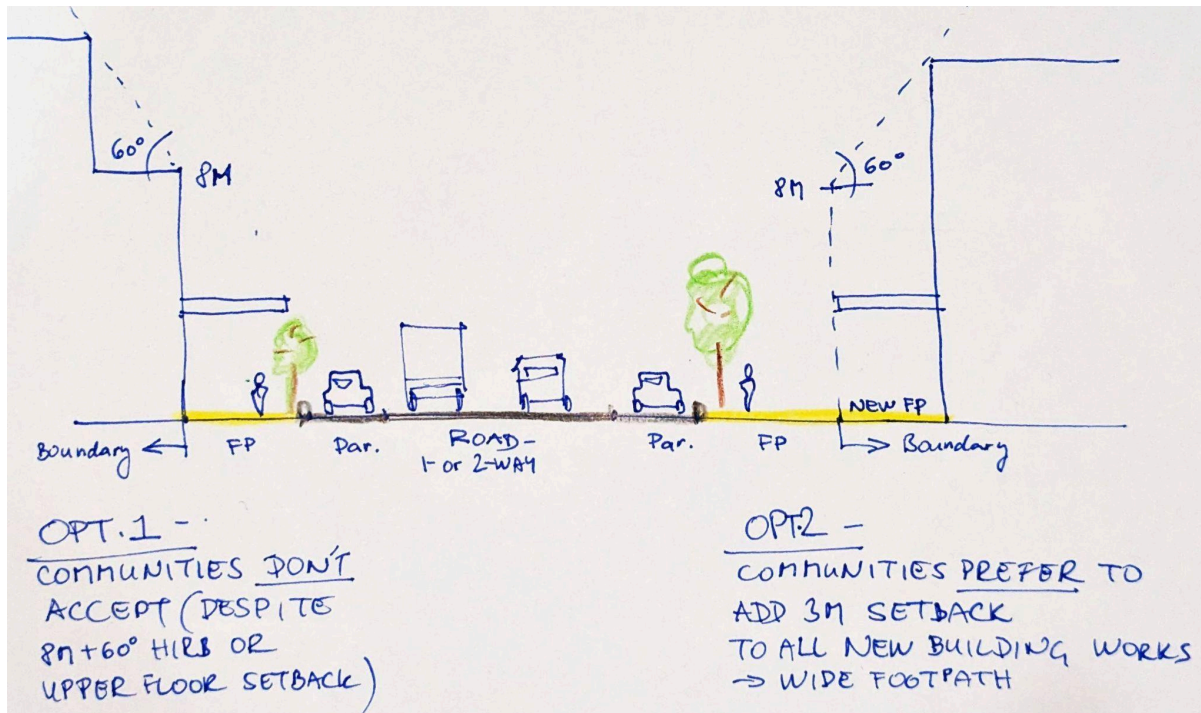 60°
8M
8M
60°
Boundary
FP
Par.
ROAD-
1- or 2-WAY
Par.
FP
NEW FP
Boundary
OPT.1 -
COMMUNITIES DON'T
ACCEPT (DESPITE
8M+60° HIRB OR
UPPER FLOOR SETBACK)
OPT.2 -
COMMUNITIES PREFER TO
ADD 3M SETBACK
TO ALL NEW BUILDING WORKS
→ WIDE FOOTPATH